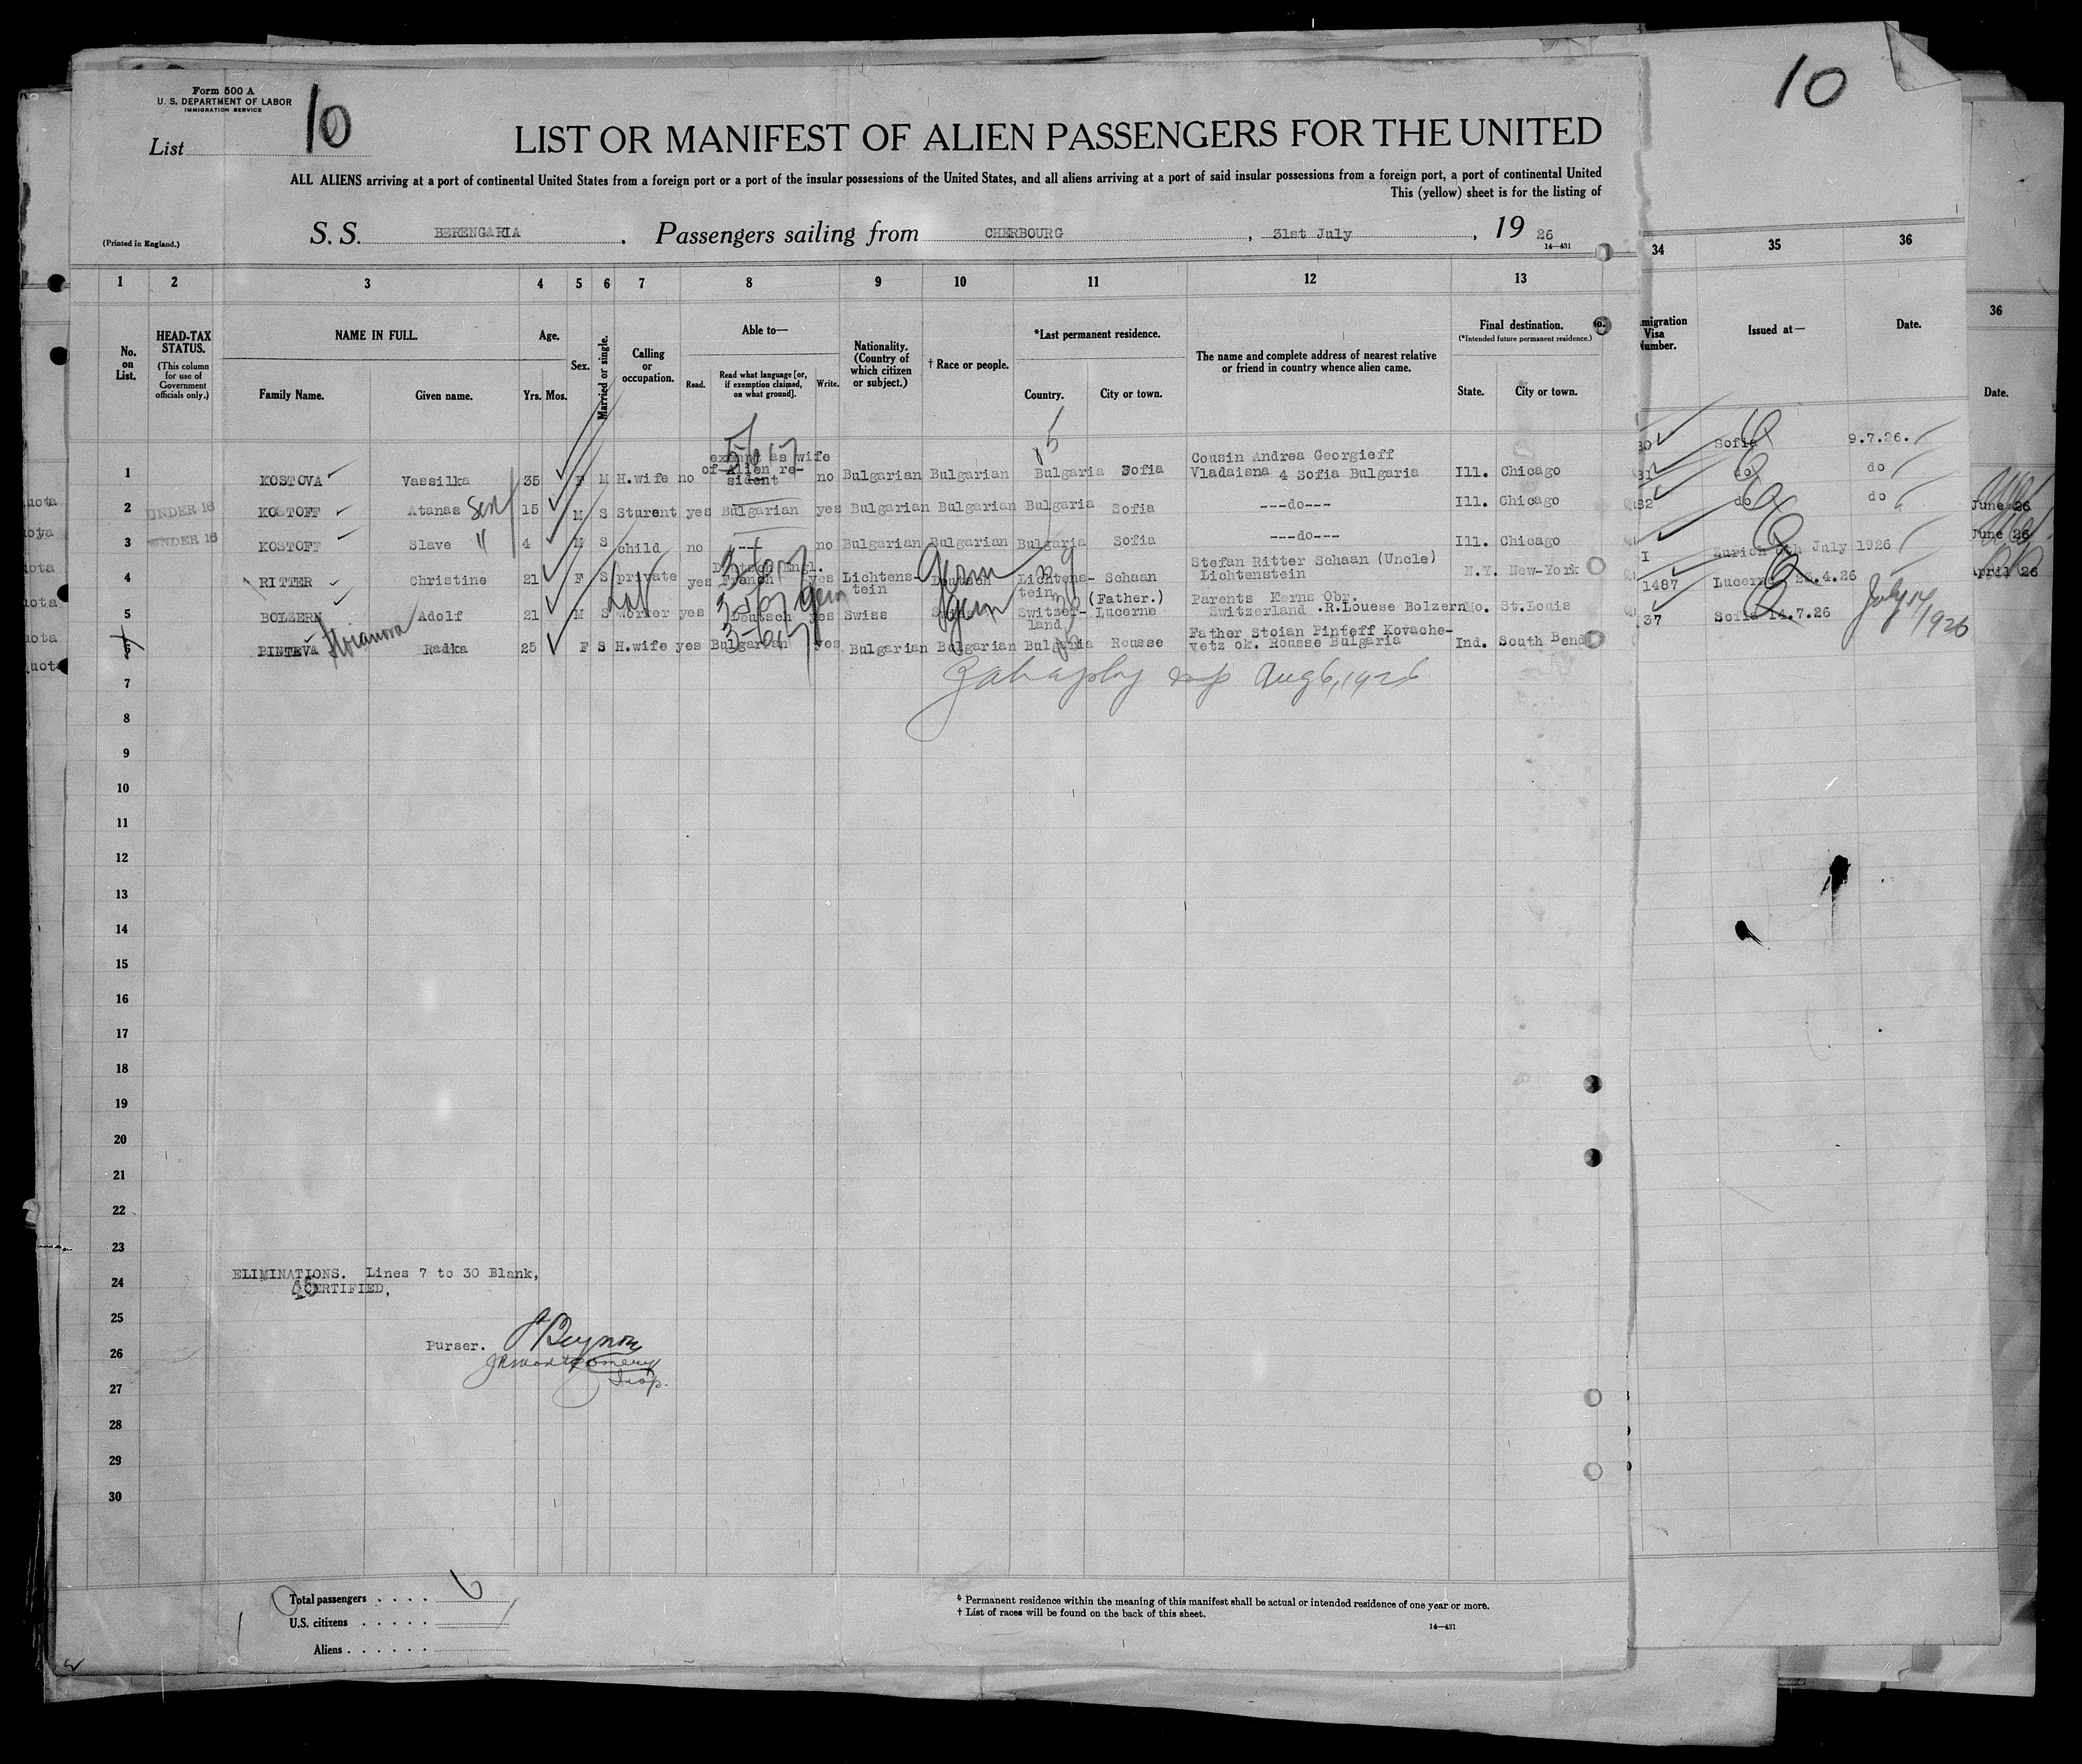 Form 500 A
U. S. DEPARTMENT OF LABOR
IMMIGRATION SERVICE
List 10
10
LIST OR MANIFEST OF ALIEN PASSENGERS FOR THE UNITED
ALL ALIENS arriving at a port of continental United States from a foreign port or a port of the insular possessions of the United States, and all aliens arriving at a port of said insular possessions from a foreign port, a port of continental United
This (yellow) sheet is for the listing of
(Printed in England.)
S. S. BERENGARIA. Passengers sailing from CHERBOURG, 31st July, 19 26
14—431
1 2 3 4 5 6 7 8 9 10 11 12 13 34 35 36
36
No. on List.
HEAD-TAX STATUS.
(This column for use of Government officials only.)
NAME IN FULL.
Family Name. Given name.
Age.
Yrs. Mos.
Sex.
Married or single.
Calling or occupation.
Able to—
Read. Read what language [or, if exemption claimed, on what ground]. Write.
Nationality. (Country of which citizen or subject.)
† Race or people.
*Last permanent residence.
Country. City or town.
The name and complete address of nearest relative or friend in country whence alien came.
Final destination.
(*Intended future permanent residence.)
State. City or town.
migration Visa Number.
Issued at—
Date.
Date.
1 KOSTOVA Vassilka 35 F M H.wife no exempt as wife of Alien resident no Bulgarian Bulgarian Bulgaria Sofia Cousin Andrea Georgieff Vladaisna 4 Sofia Bulgaria Ill. Chicago 30 Sofia 9.7.26.
2 UNDER 16 KOSTOFF Atanas son 15 M S Sturent yes Bulgarian yes Bulgarian Bulgarian Bulgaria Sofia ---do--- Ill. Chicago 31 do do
3 UNDER 16 KOSTOFF Slave " 4 M S child no --- no Bulgarian Bulgarian Bulgaria Sofia ---do--- Ill. Chicago 32 do do
4 RITTER Christine 21 F S private yes Deutsch Engl. French yes Lichtens-tein Deutsch Germ Lichtens-tein Schaan (Father.) Stefan Ritter Schaan (Uncle) Lichtenstein N.Y. New-York I Zurich July 1926
5 BOLZERN Adolf 21 M S worker yes Deutsch yes Swiss Germ Switzer-land Lucerne Parents Kerns Obr. Switzerland .R.Louese Bolzern Mo. St.Louis 1487 Lucerne 4.26
6 PINTEVA Radka 25 F S H.wife yes Bulgarian yes Bulgarian Bulgarian Bulgaria Rousse Father Stoian Pinteff Kovache-vetz ok. Rousse Bulgaria Ind. South Bend 37 Sofia 14.7.26 July 14/1926
June 26
June 26
April 26
Aug 6, 1926
7
8
9
10
11
12
13
14
15
16
17
18
19
20
21
22
23
ELIMINATIONS. Lines 7 to 30 Blank,
24
CERTIFIED,
25
Purser.
26
Insp.
27
28
29
30
Total passengers . . . . 6
U.S. citizens . . . . .
Aliens . . . . . .
* Permanent residence within the meaning of this manifest shall be actual or intended residence of one year or more.
† List of races will be found on the back of this sheet.
14—431